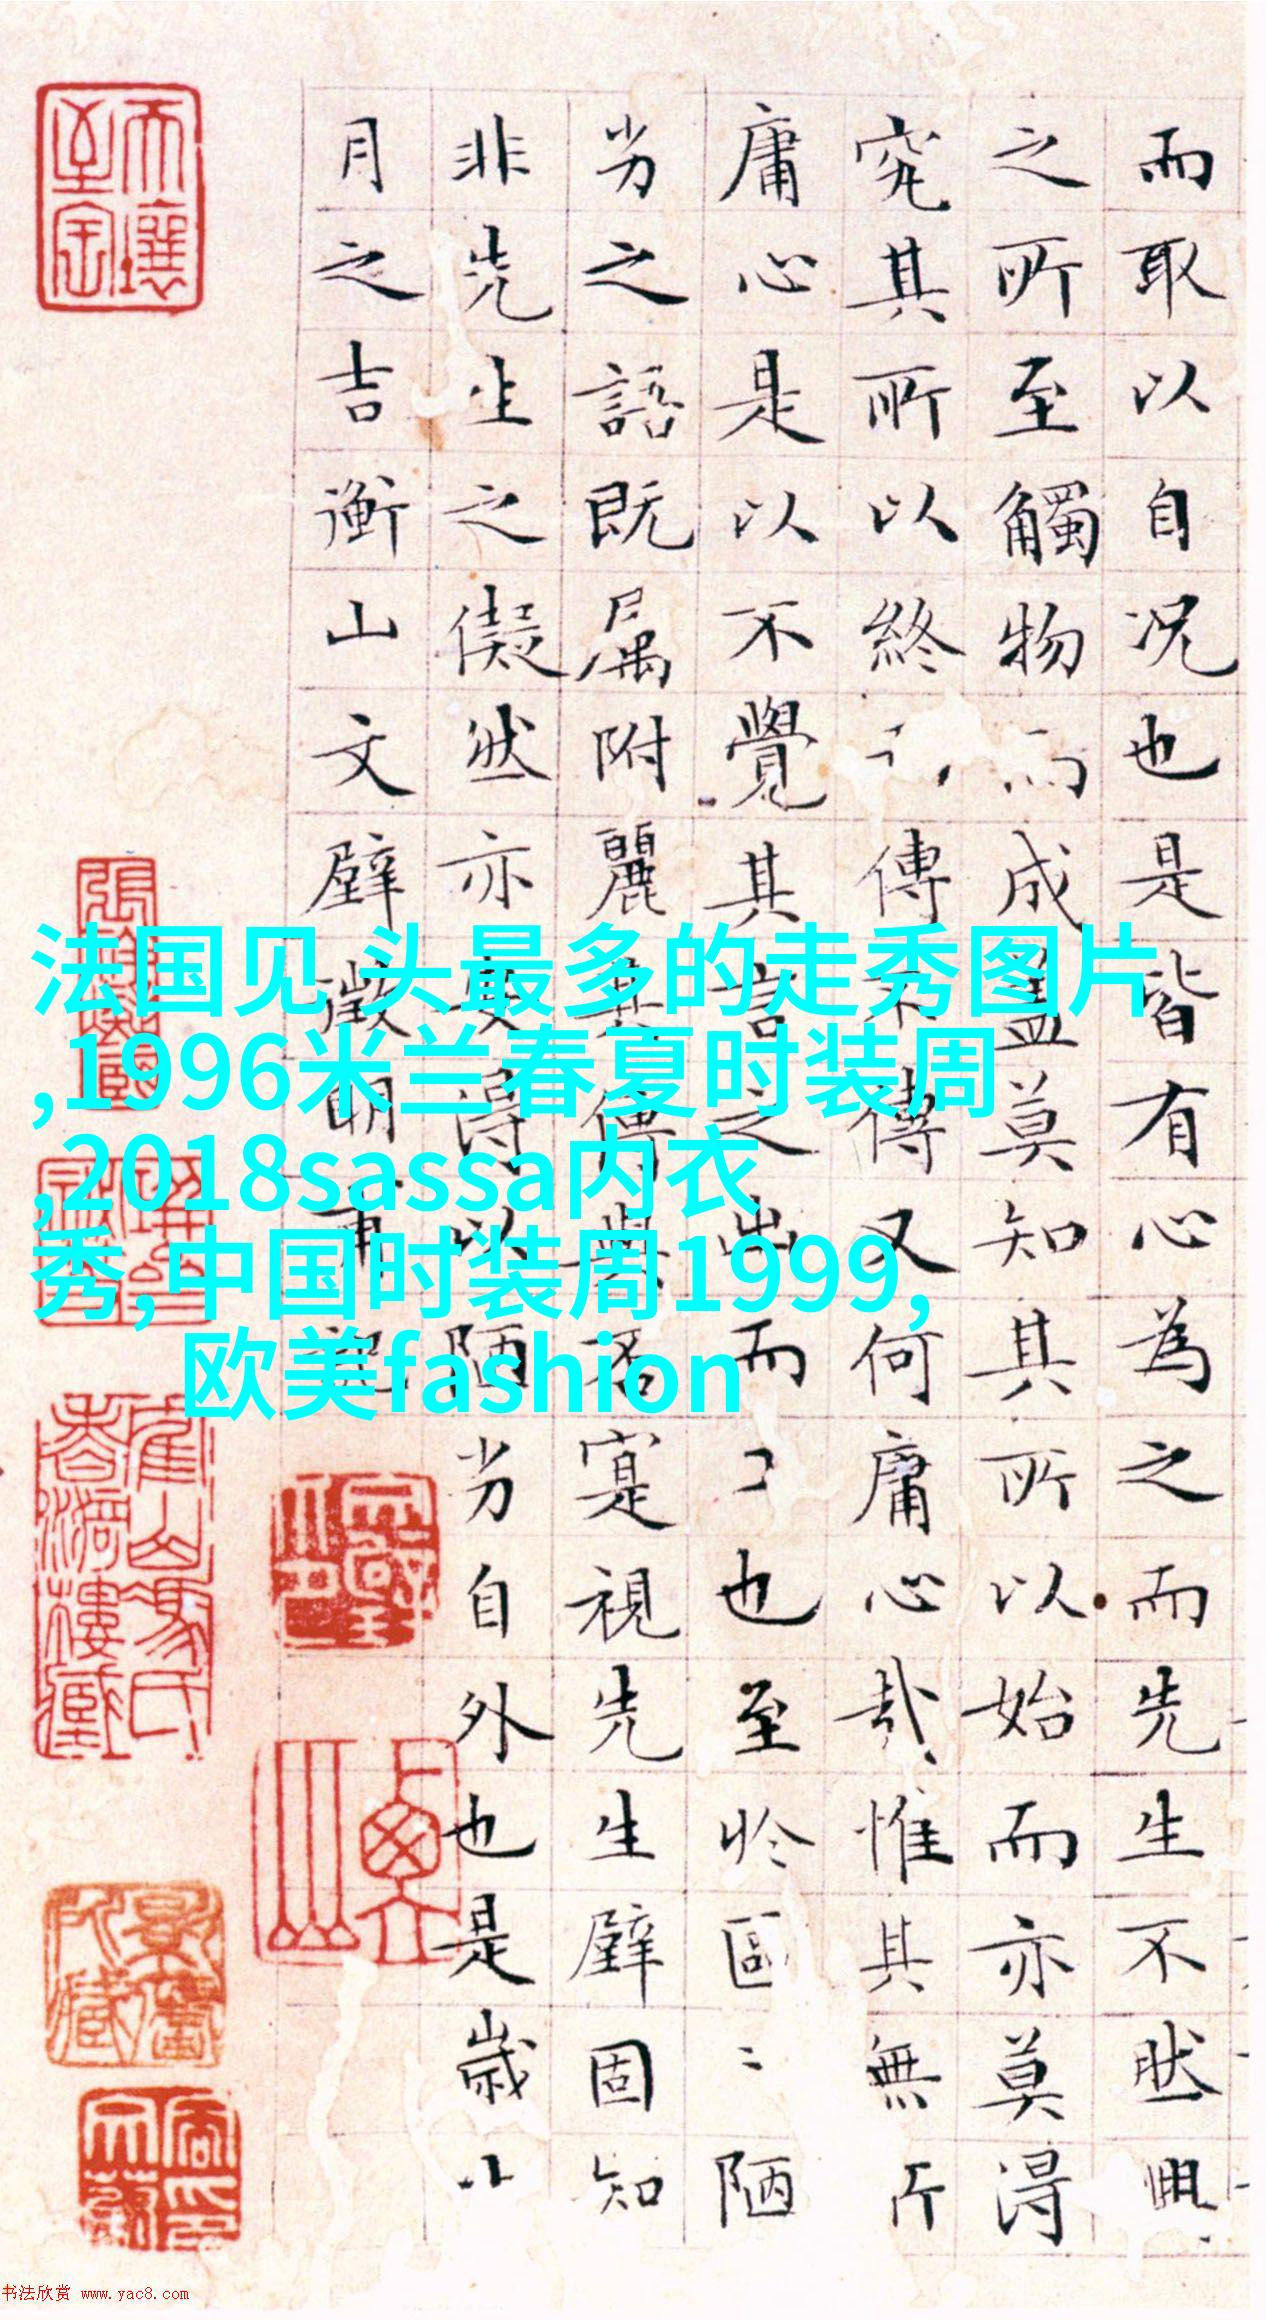 而取以自況也是皆有心為之而先生不然興
之所至觸物而成盖莫知其所以始而亦莫得
究其所以終傳不傳又何庸心哉惟其無所
庸心是以不覺其言之出而工也至於區〻陋
劣之語既属附麗其傳與否寔視先生璧固知
非先生之儗然亦安得以陋劣自外也是歲八
月之吉衡山文璧徵明甫記
法国见 头最多的走秀图片
,1996米兰春夏时装周
,2018sassa内衣
秀,中国时装周1999,
欧美fashion
书法欣赏 www.yac8.com